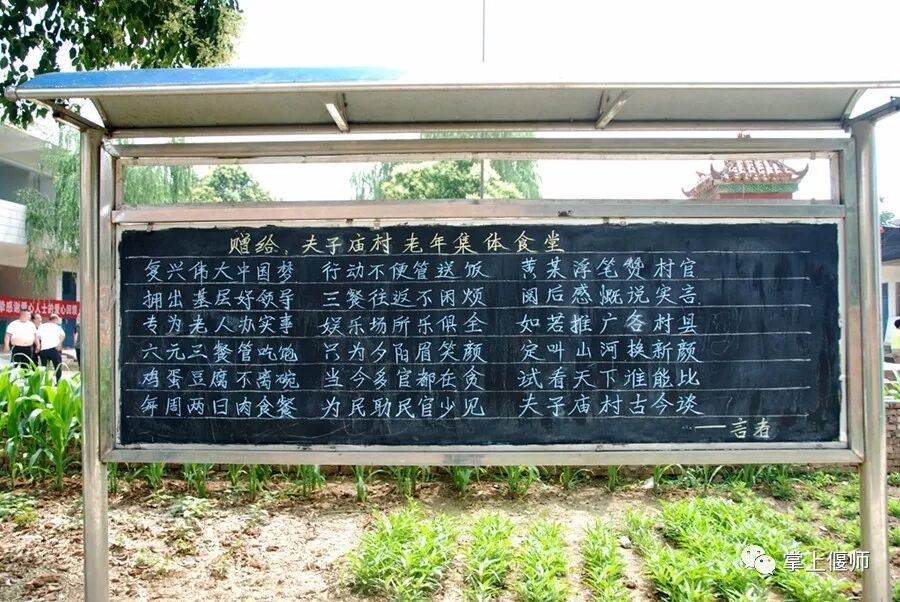 赠给、夫子庙村老年集体食堂
复兴伟大中国梦
拥出基层好领导
专为老人办实事
六元三餐管吃饱
鸡蛋豆腐不离碗
每周两日肉食餐
行动不便管送饭
三餐往返不闲烦
娱乐场所乐俱全
只为夕阳眉笑颜
当今多官都在贪
为民助民官少见
黄某浮笔赞村官
阅后感慨说实言
如若推广各村县
定叫山河换新颜
试看天下谁能比
夫子庙村古今谈
——言者
挚感谢爱心人士的爱心回馈
掌上偃师